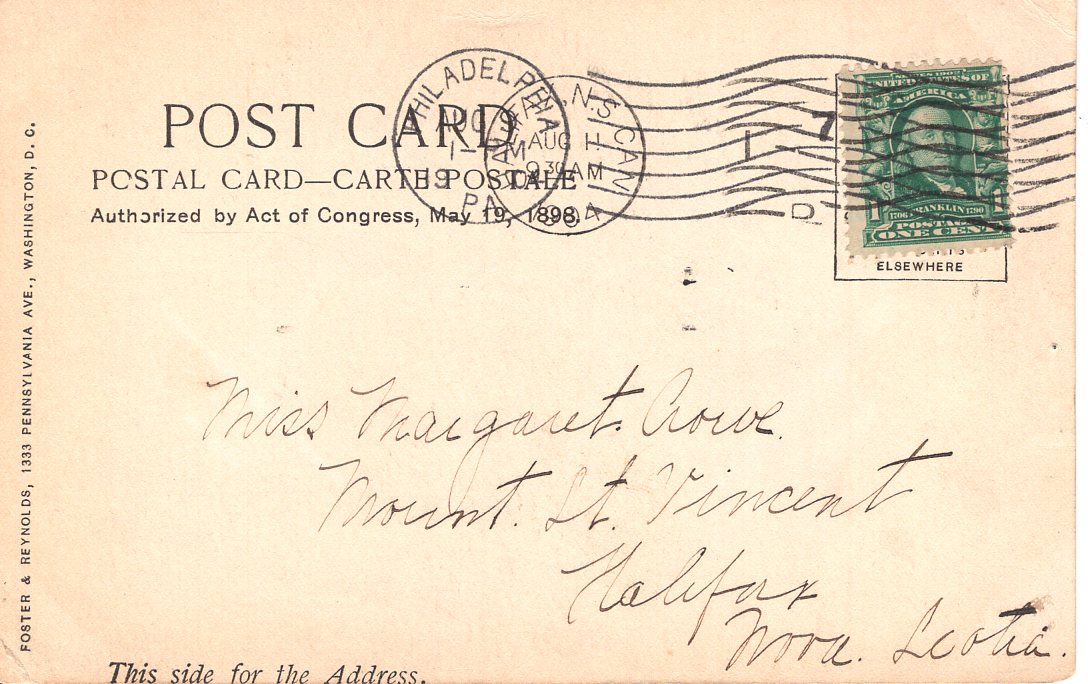 POST CARD
POSTAL CARD—CARTE POSTALE
Authorized by Act of Congress, May 19, 1898.
PHILADELPHIA
PA
N.S. CAN
AUG 11
9 30 AM
04
1
7
D
SERIES 1902
UNITED STATES OF
AMERICA
1706 FRANKLIN 1790
1 POSTAGE 1
ONE CENT
ELSEWHERE
Miss Margaret Crowe.
Mount. St. Vincent
Halifax
Nova. Scotia.
FOSTER & REYNOLDS, 1333 PENNSYLVANIA AVE., WASHINGTON, D. C.
This side for the Address.